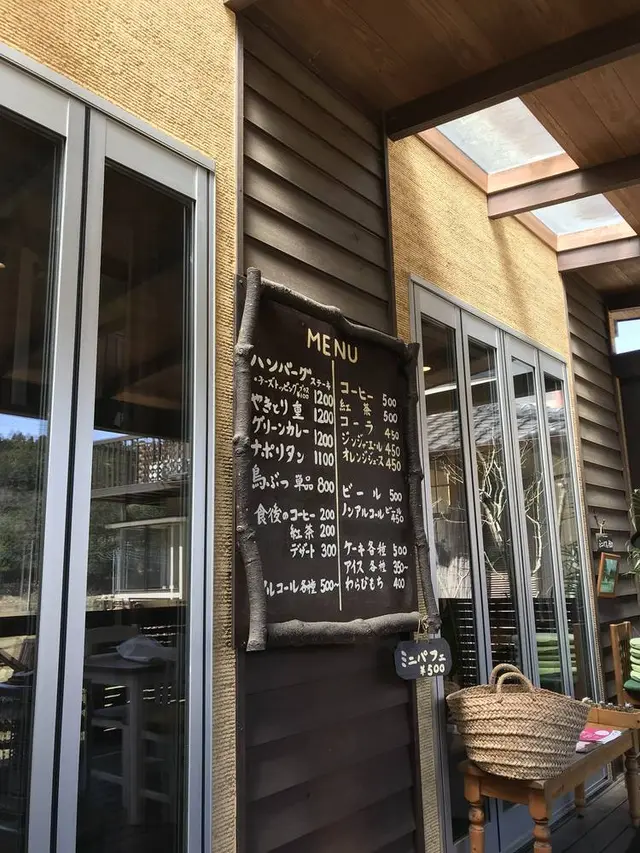 MENU
ハンバーグステーキ 1200
・チーズトッピングプラス¥100
やきとり重 1200
グリーンカレー 1200
ナポリタン 1100
鳥ぶつ 単品 800
食後のコーヒー 200
紅茶 200
デザート 300
ルコール各種 500~
コーヒー 500
紅茶 500
コーラ 450
ジンジャエール 450
オレンジジュース 450
ビール 500
ノンアルコールビール 450
ケーキ各種 500
アイス各種 350~
わらびもち 400
ミニパフェ
¥500